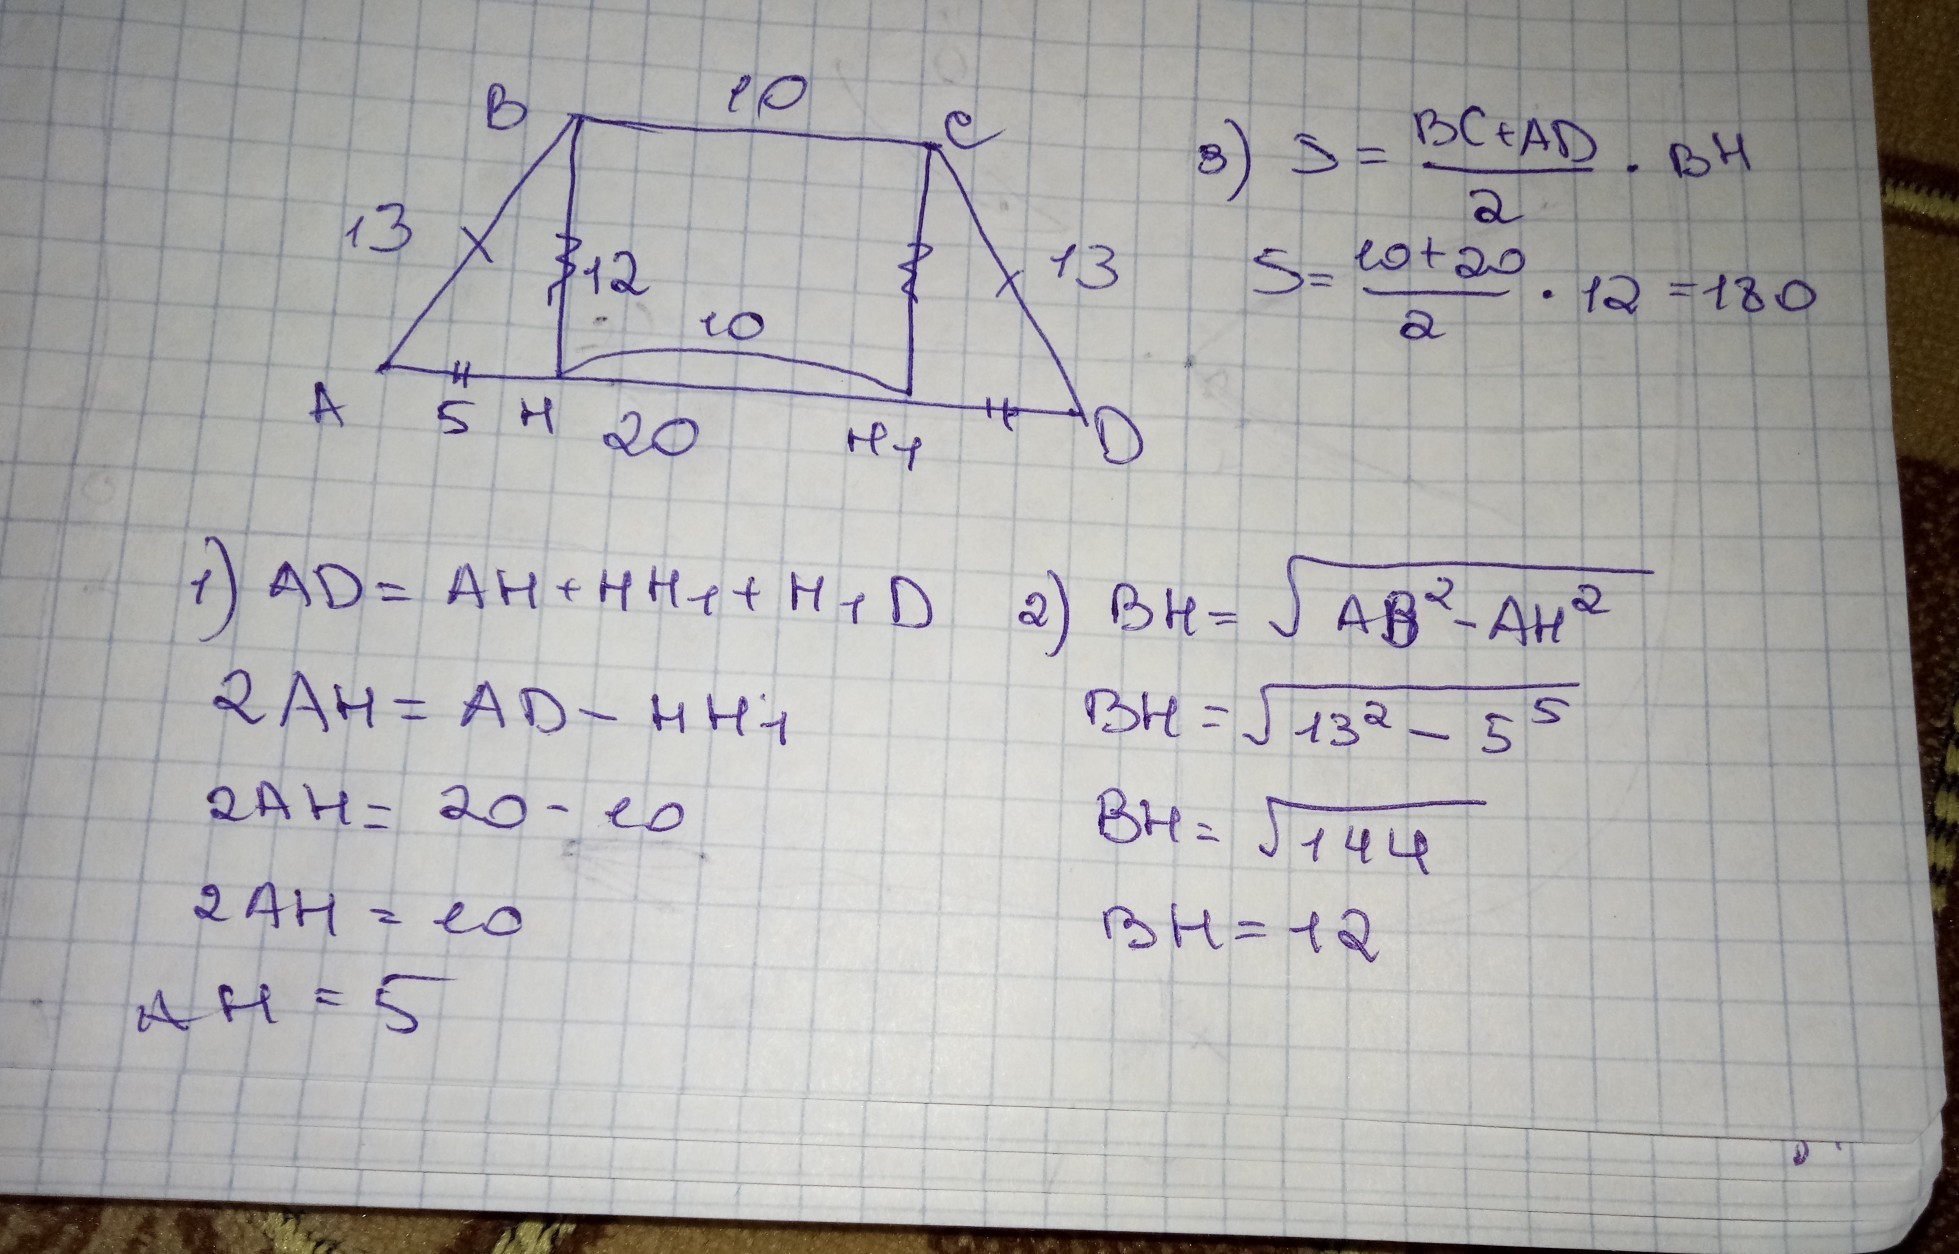 B 10 C
13 12 13
10
A 5 H 20 H₁ D
3) S = (BC+AD)/2 · BH
S = (10+20)/2 · 12 = 180
1) AD = AH + HH₁ + H₁D
2AH = AD - HH₁
2AH = 20 - 10
2AH = 10
AH = 5
2) BH = √(AB² - AH²)
BH = √(13² - 5⁵)
BH = √144
BH = 12